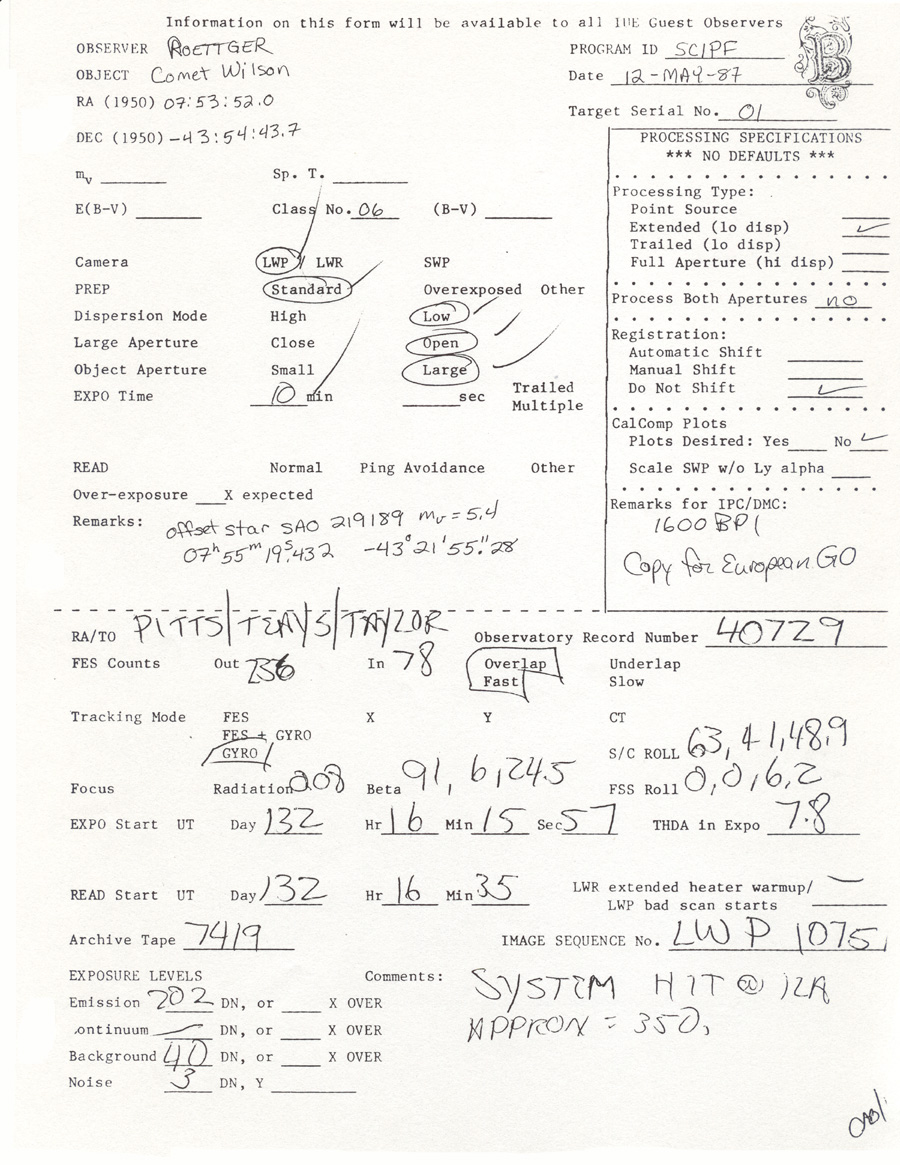 Information on this form will be available to all IUE Guest Observers
OBSERVER ROETTGER PROGRAM ID SCIPF
OBJECT Comet Wilson Date 12-MAY-87
RA (1950) 07:53:52.0 Target Serial No. 01
DEC (1950) -43:54:43.7
PROCESSING SPECIFICATIONS
*** NO DEFAULTS ***
mv Sp. T.
E(B-V) Class No. 06 (B-V)
Camera LWP LWR SWP
PREP Standard Overexposed Other
Dispersion Mode High Low
Large Aperture Close Open
Object Aperture Small Large
EXPO Time 10 min sec Trailed
Multiple
READ Normal Ping Avoidance Other
Over-exposure X expected
Remarks: offset star SAO 219189 mv = 5.4
07h 55m 19s.432 -43° 21' 55."28
Processing Type:
Point Source
Extended (lo disp) ✓
Trailed (lo disp)
Full Aperture (hi disp)
Process Both Apertures no
Registration:
Automatic Shift
Manual Shift
Do Not Shift ✓
CalComp Plots
Plots Desired: Yes No ✓
Scale SWP w/o Ly alpha
Remarks for IPC/DMC:
1600 BPI
Copy for European GO
RA/TO PITTS/TEAYS/TAYLOR Observatory Record Number 40729
FES Counts Out In 78 Overlap Underlap
Fast Slow
Tracking Mode FES X Y CT
FES + GYRO
GYRO S/C ROLL 63,41,48.9
Focus Radiation Beta 91, 6,24.5 FSS Roll 0,0,6.2
EXPO Start UT Day 132 Hr 16 Min 15 Sec 57 THDA in Expo 7.8
READ Start UT Day 132 Hr 16 Min 35 LWR extended heater warmup/ —
LWP bad scan starts
Archive Tape 7419 IMAGE SEQUENCE No. LWP 10751
EXPOSURE LEVELS Comments: SYSTEM HIT @
Emission 202 DN, or X OVER APPROX = 350,
ontinuum — DN, or X OVER
Background 40 DN, or X OVER
Noise 3 DN, Y